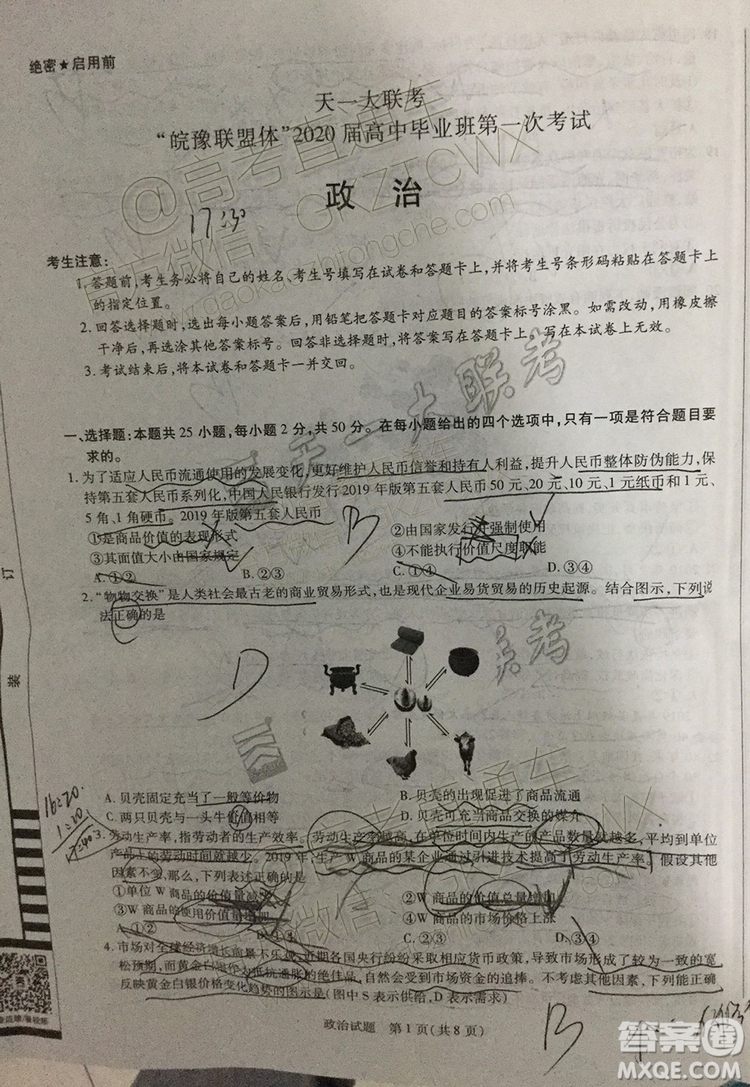 绝密★启用前
天一大联考
“皖豫联盟体”2020届高中毕业班第一次考试
政治
17:30
考生注意:
1.答题前,考生务必将自己的姓名、考生号填写在试卷和答题卡上,并将考生号条形码粘贴在答题卡上
的指定位置。
2.回答选择题时,选出每小题答案后,用铅笔把答题卡对应题目的答案标号涂黑。如需改动,用橡皮擦
干净后,再选涂其他答案标号。回答非选择题时,将答案写在答题卡上。写在本试卷上无效。
3.考试结束后,将本试卷和答题卡一并交回。
天一大联考
一、选择题:本题共25小题,每小题2分,共50分。在每小题给出的四个选项中,只有一项是符合题目要
求的。
1.为了适应人民币流通使用的发展变化,更好维护人民币信誉和持有人利益,提升人民币整体防伪能力,保
持第五套人民币系列化,中国人民银行发行2019年版第五套人民币50元、20元、10元、1元纸币和1元、
5角、1角硬币。2019年版第五套人民币
B
①是商品价值的表现形式 ②由国家发行并强制使用
③其面值大小由国家规定 ④不能执行价值尺度职能
A.①② B.②③ C.①④ D.③④
2.“物物交换”是人类社会最古老的商业贸易形式,也是现代企业易货贸易的历史起源。结合图示,下列说
法正确的是
D
A.贝壳固定充当了一般等价物 B.贝壳的出现促进了商品流通
C.两只贝壳与一头牛价值相等 D.贝壳增加了商品交换的媒介
16:20
3.劳动生产率,指劳动者的生产效率。劳动生产率越高,在单位时间内生产的产品数量就越多,平均到单位
产品上的劳动时间就越少。2019年,生产W商品的某企业通过引进技术提高了劳动生产率。假设其他
因素不变,那么,下列表述正确的是
①单位W商品的价值量减少 ②W商品的价值总量增加
③W商品的使用价值量增加 ④W商品的市场价格上涨
A.①② B.①③ C.②④ D.③④
4.市场对全球经济增长前景不乐观,近期各国央行纷纷采取相应货币政策,导致市场形成了较为一致的宽
松预期,而黄金白银作为抵抗通胀的绝佳品,自然会受到市场资金的追捧。不考虑其他因素,下列能正确
反映黄金白银价格变化趋势的图示是(图中S表示供给,D表示需求)
B
政治试题 第1页(共8页)
装
订
@高考直通车
官方微信:GKZTCWX
答案圈
MXQE.COM